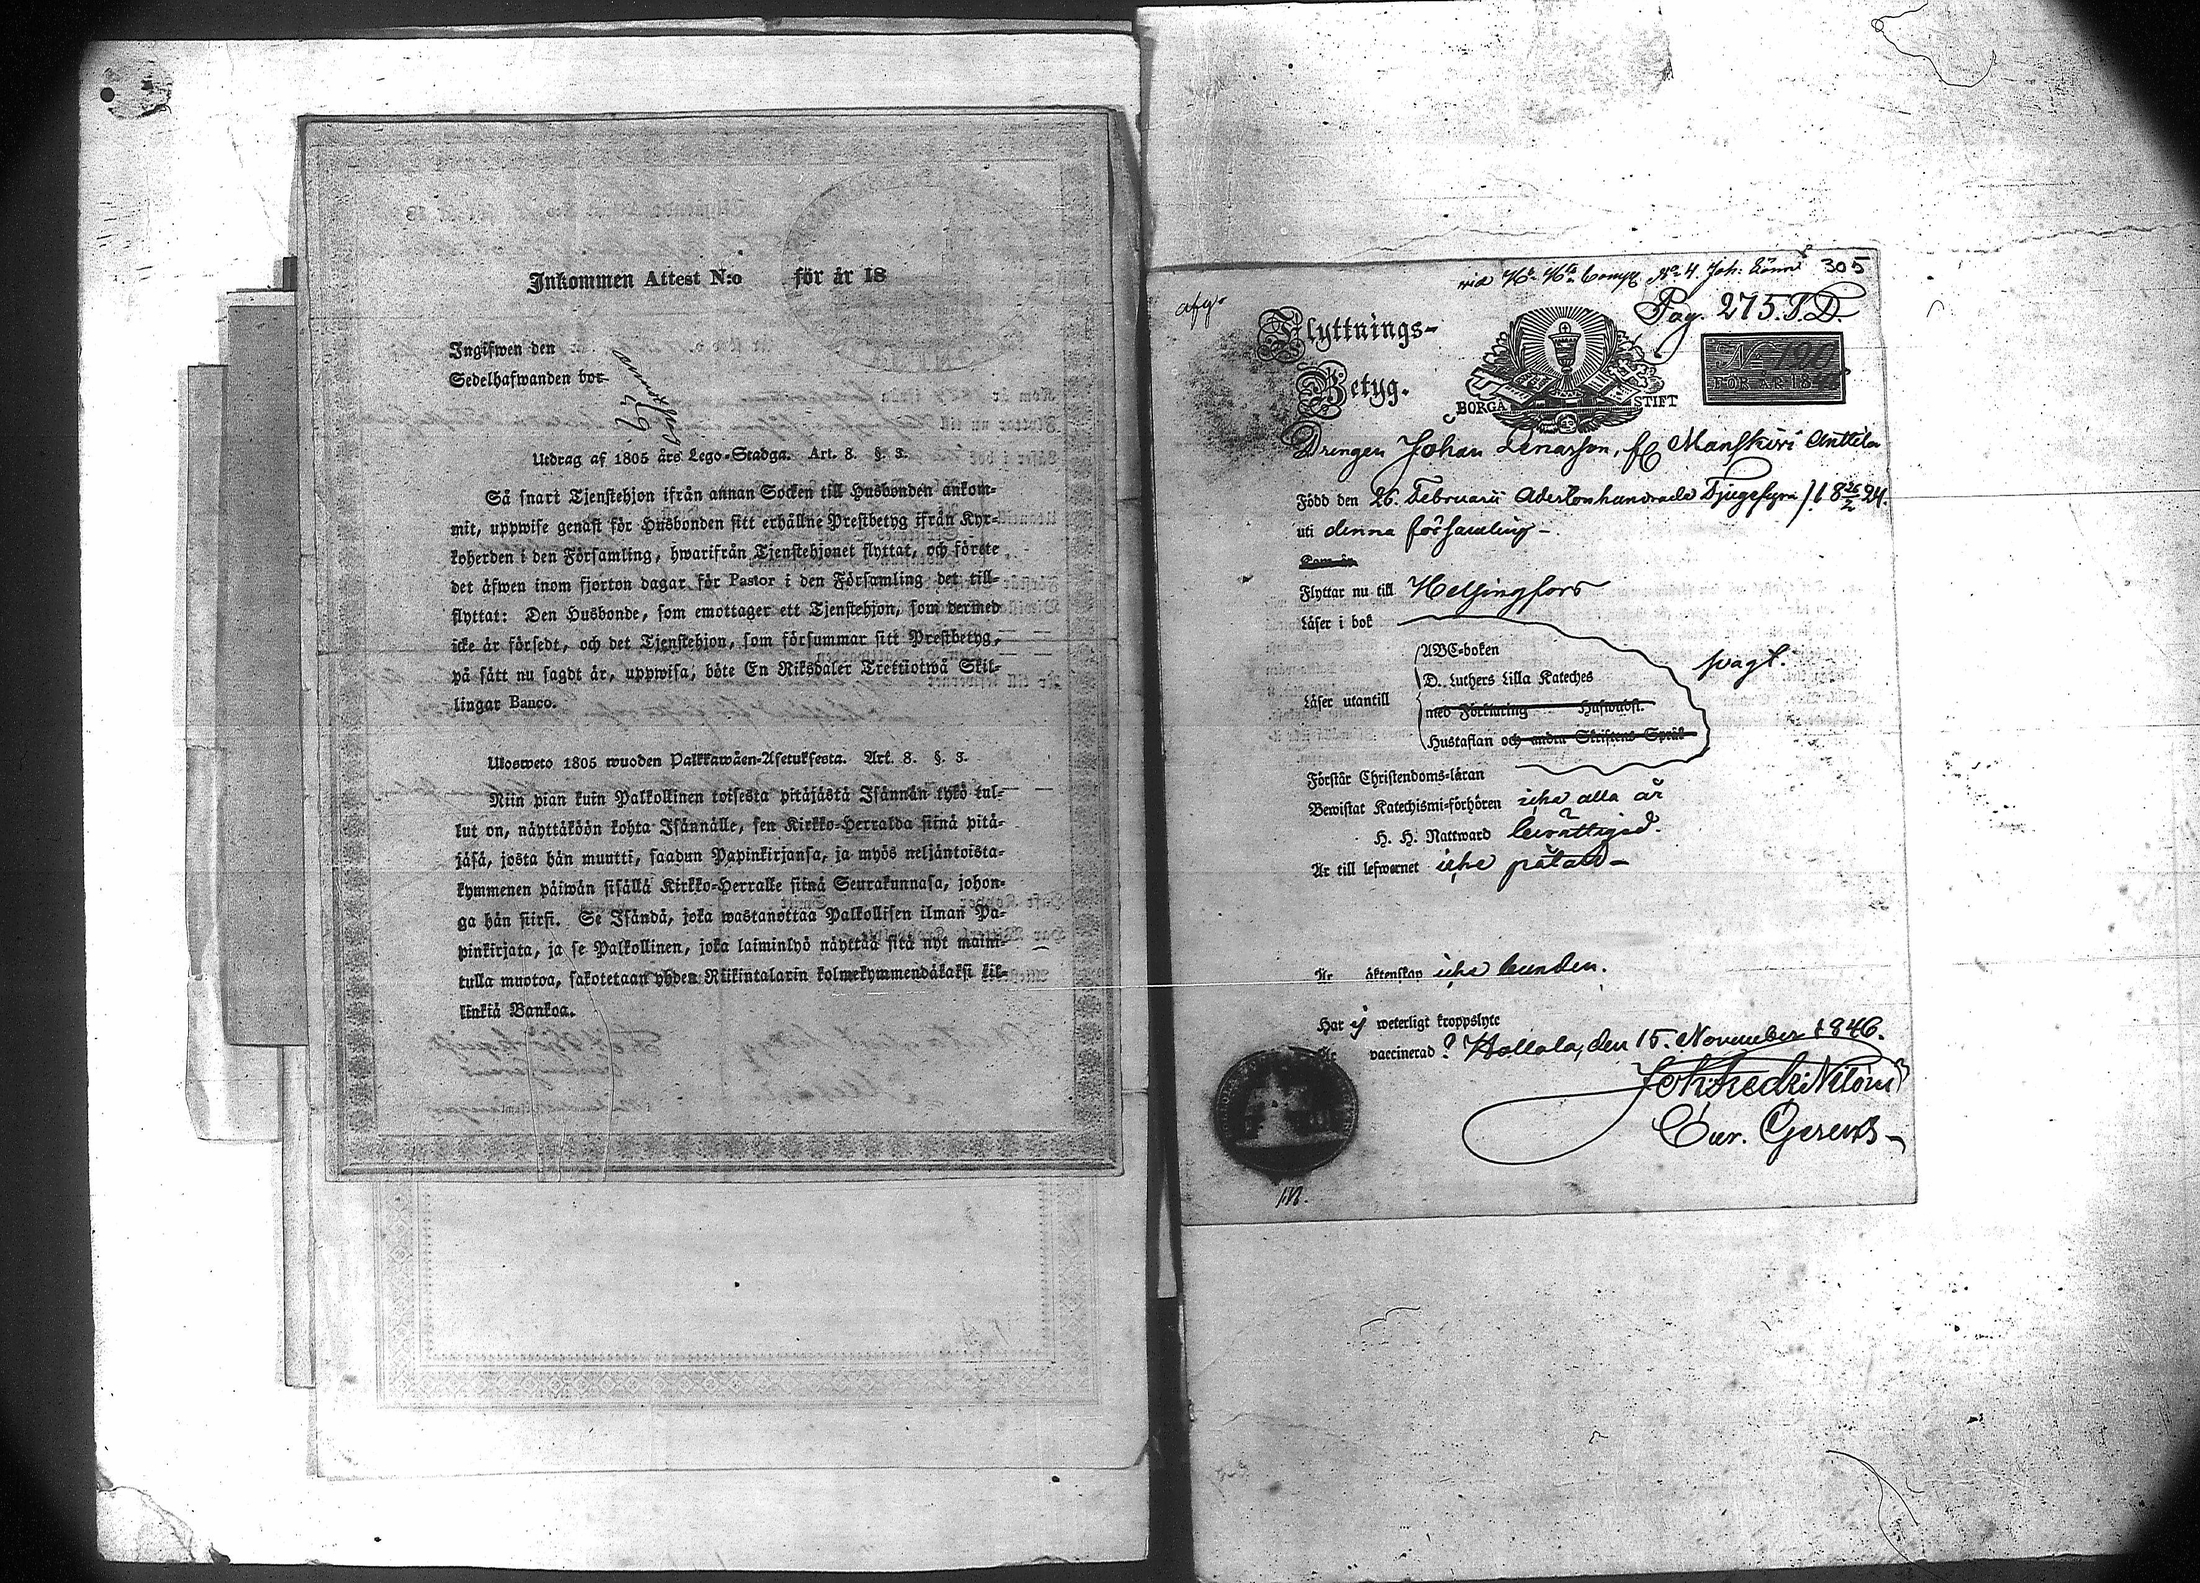 Inkommen Attest N:o för år 18
Ingifwen den
Sedelhafwanden bor
Utdrag af 1805 års Lego-Stadga. Art. 8. §. 3.
Så snart Tjenstehjon ifrån annan Socken till Husbonden ankom-
mit, uppwise genast för Husbonden sitt erhållne Prestbetyg ifrån Kyr-
koherden i den Församling, hwarifrån Tjenstehjonet flyttat, och förete
det äfwen inom fjorton dagar för Pastor i den Församling det till-
flyttat: Den Husbonde, som emottager ett Tjenstehjon, som dermed
icke är försedt, och det Tjenstehjon, som försummar sitt Prestbetyg,
på sätt nu sagdt är, uppwisa, böte En Riksdaler Trettiotwå Skil-
lingar Banco.
Ulosweto 1805 wuoden Palkkawäen-Asetuksesta. Art. 8. §. 3.
Niin pian kuin Palkollinen toisesta pitäjästä Isännän tykö tul-
lut on, näyttäköön kohta Isännälle, sen Kirkko-Herralda siinä pitä-
jäsä, josta hän muutti, saadun Papinkirjansa, ja myös neljäntoista-
kymmenen päiwän sisällä Kirkko-Herralle siinä Seurakunnasa, johon-
ga hän siirsi. Se Isändä, joka wastanottaa Palkollisen ilman Pa-
pinkirjata, ja se Palkollinen, joka laiminlyö näyttää sitä nyt maini-
tulla muotoa, sakotetaan yhden Riikintalarin kolmekymmendäkaksi kil-
linkiä Bankoa.
305
afg.
Pag. 275. P.D.
Flyttnings-
Betyg.
BORGÅ STIFT
No 190
FÖR ÅR 18
Drengen Johan Lenarsson, fr. Manskivi Anttila
Född den 26. Februarii Adertonhundrade Tjugefyra /: 18 26/2 24.
uti denna församling -
Kom år
Flyttar nu till Helsingfors
Läser i bok
ABC-boken
D. Luthers Lilla Kateches
Läser utantill
med Förklaring Huswubst.
Hustaflan och andra Skriftens Språk
svagt.
Förstår Christendoms-läran
Bewistat Katechismi-förhören icke alla år
H. H. Nattward berättigad.
Är till lefwernet icke påtald -
Är äktenskap icke bunden.
Har ej weterligt kroppslyte
Är vaccinerad? Hollola, den 15. November 1846.